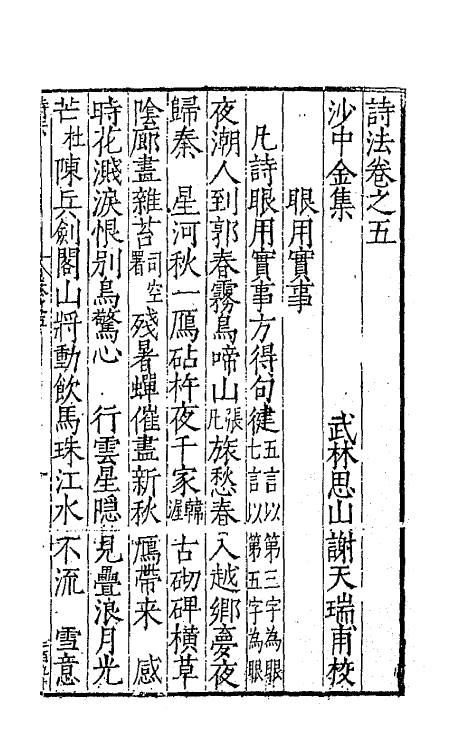 詩法卷之五
沙中金集　武林思山謝天瑞甫校
眼用實事
凡詩眼用實事方得句健五言以第三字為眼七言以第五字為眼
夜潮人到郭春霧鳥啼山張凡旅愁春入越鄉夢夜
歸秦　星河秋一鴈砧杵夜千家韓渥古砌碑橫草
陰廊畫雜苔司空署殘暑蟬催盡新秋鴈帶来　感
時花濺淚恨别鳥驚心　行雲星隱見疊浪月光
芒杜陳兵劍閣山將動飲馬珠江水不流　雪意